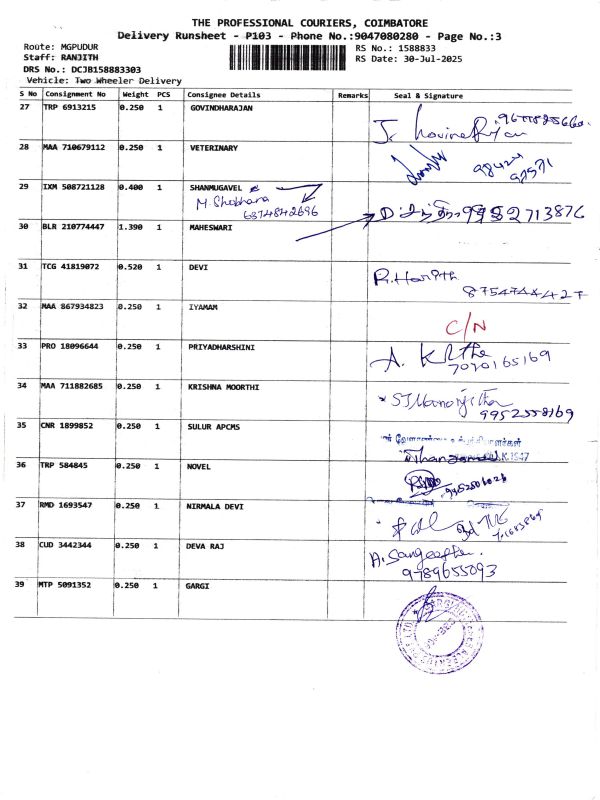 THE PROFESSIONAL COURIERS, COIMBATORE
Delivery Runsheet - P103 - Phone No.:9047080280 - Page No.:3
Route: MGPUDUR
RS No.: 1588833
Staff: RANJITH
RS Date: 30-Jul-2025
DRS No.: DCJB158883303
Vehicle: Two Wheeler Delivery
S No Consignment No Weight PCS Consignee Details Remarks Seal & Signature
27 TRP 6913215 0.250 1 GOVINDHARAJAN
28 MAA 710679112 0.250 1 VETERINARY
29 IXM 508721128 0.400 1 SHANMUGAVEL
M. Shobhana
6374842696
30 BLR 210774447 1.390 1 MAHESWARI 9952713876
31 TCG 41819072 0.520 1 DEVI R. Harith
32 MAA 867934823 0.250 1 IYAMAM
C/N
33 PRO 18096644 0.250 1 PRIYADHARSHINI A.
7070165169
34 MAA 711882685 0.250 1 KRISHNA MOORTHI
9952558169
35 CNR 1899852 0.250 1 SULUR APCMS
36 TRP 584845 0.250 1 NOVEL
37 RMD 1693547 0.250 1 NIRMALA DEVI
38 CUD 3442344 0.250 1 DEVA RAJ A. Sangeetha
9789655093
39 MTP 5091352 0.250 1 GARGI